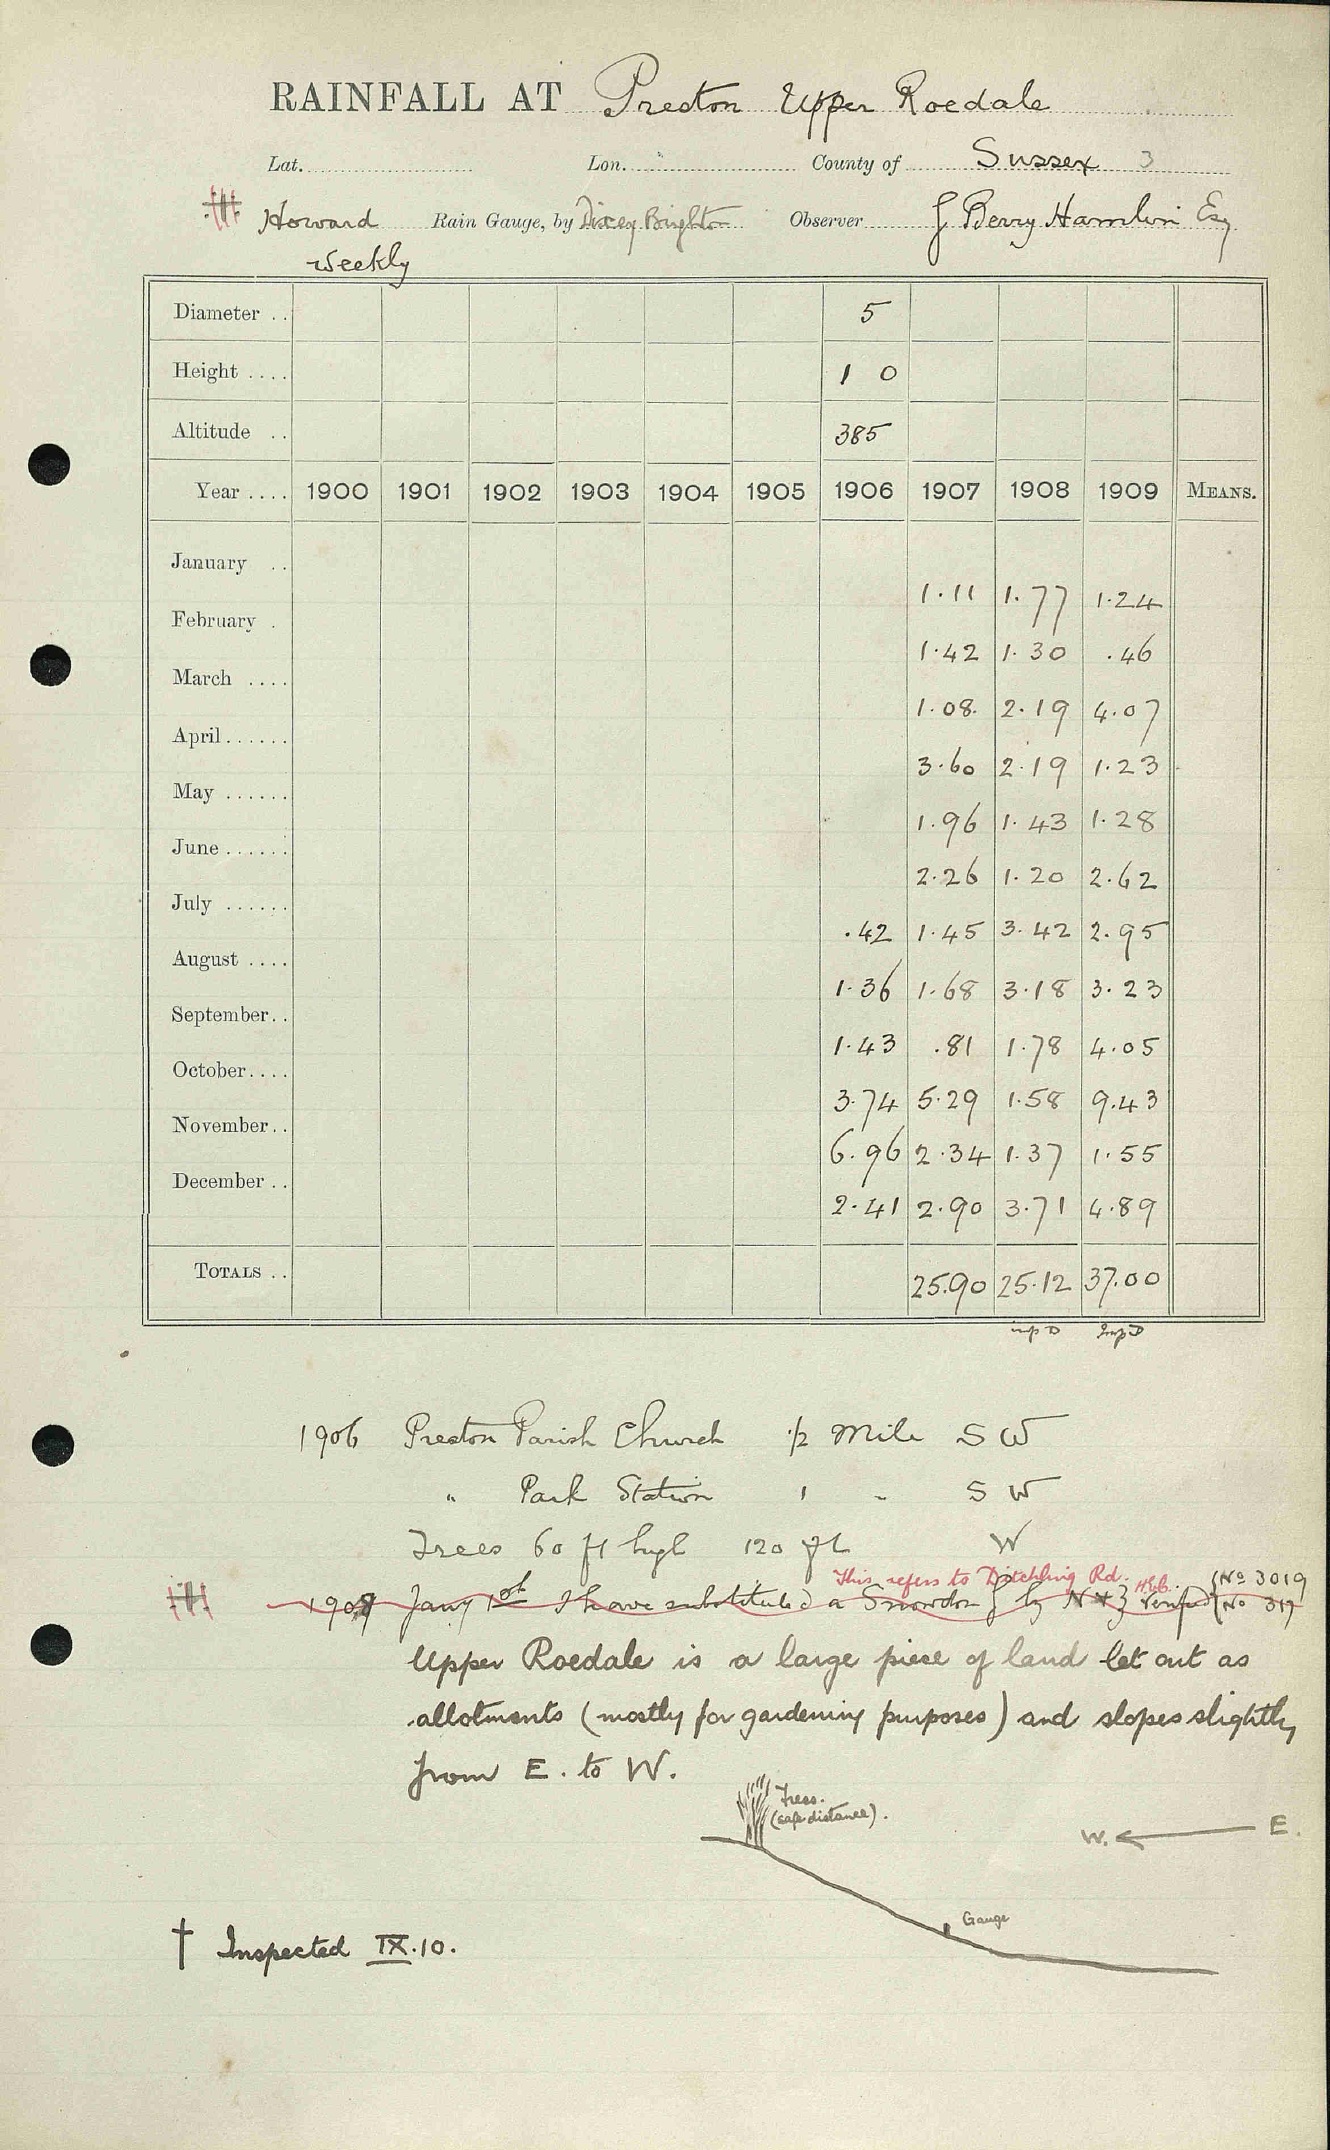 RAINFALL AT Preston Upper Roedale
Lat. Lon. County of Sussex 3
Howard Rain Gauge, by Dixey Brighton Observer J Berry Hamlin Esq
Weekly
Diameter .. 5
Height .... 1 0
Altitude .. 385
Year .... 1900 1901 1902 1903 1904 1905 1906 1907 1908 1909 MEANS.
January .. 1.11 1.77 1.24
February . 1.42 1.30 .46
March .... 1.08 2.19 4.07
April ...... 3.60 2.19 1.23
May ...... 1.96 1.43 1.28
June ...... 2.26 1.20 2.62
July ...... .42 1.45 3.42 2.95
August .... 1.36 1.68 3.18 3.23
September.. 1.43 .81 1.78 4.05
October.... 3.74 5.29 1.58 9.43
November.. 6.96 2.34 1.37 1.55
December .. 2.41 2.90 3.71 4.89
TOTALS .. 25.90 25.12 37.00
1906 Preston Parish Church 1/2 Mile S W
" Park Station 1 " S W
Trees 60 ft high 120 ft W
This refers to Ditchling Rd.
1907 Jany 1st I have substituted a Snowdon by N & Z Verified No 3019
No 317
Upper Roedale is a large piece of land let out as
allotments (mostly for gardening purposes) and slopes slightly
from E. to W.
Trees.
(safe distance).
W. E.
Gauge
† Inspected IX.10.